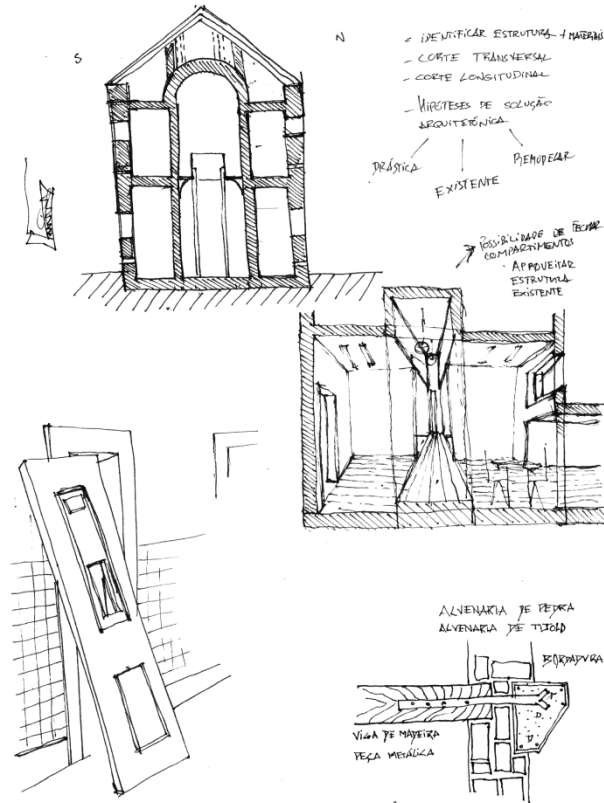 S
N
- IDENTIFICAR ESTRUTURA + MATERIAIS
- CORTE TRANSVERSAL
- CORTE LONGITUDINAL
- HIPÓTESES DE SOLUÇÃO
ARQUITETÓNICA
DRÁSTICA
EXISTENTE
REMODELAR
POSSIBILIDADE DE FECHAR
COMPARTIMENTOS
· APROVEITAR
ESTRUTURA
EXISTENTE
ALVENARIA DE PEDRA
ALVENARIA DE TIJOLO
BORDADURA
VIGA DE MADEIRA
PEÇA METÁLICA